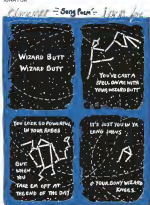 "Song Poem"
WIZARD BUTT
WIZARD BUTT
YOU'VE CAST A
SPELL ON ME WITH
YOUR WIZARD BUTT
YOU LOOK SO POWERFUL
IN YOUR ROBES
BUT
WHEN
YOU
TAKE 'EM OFF AT
THE END OF THE DAY
IT'S JUST YOU IN YR
LONG JOHNS
& YOUR BONY WIZARD
KNEES.